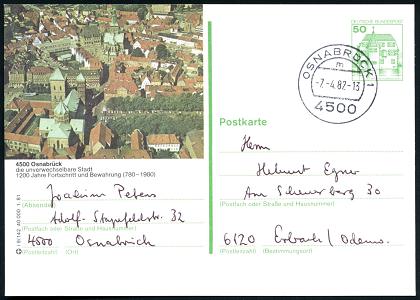 4500 Osnabrück
die unverwechselbare Stadt
1200 Jahre Fortschritt und Bewahrung (780-1980)
Joachim Peters
(Absender)
Adolf-Staufeldstr. 32
(Postfach oder Straße und Hausnummer)
4500 Osnabrück
(Postleitzahl) (Ort)
DEUTSCHE BUNDESPOST
50
OSNABRÜCK 1
m
-7.-4.82-13
4500
Postkarte
Herrn
Helmut Egner
Am Scheuerberg 30
(Postfach oder Straße und Hausnummer)
6120 Erbach/Odenw.
(Postleitzahl) (Bestimmungsort)